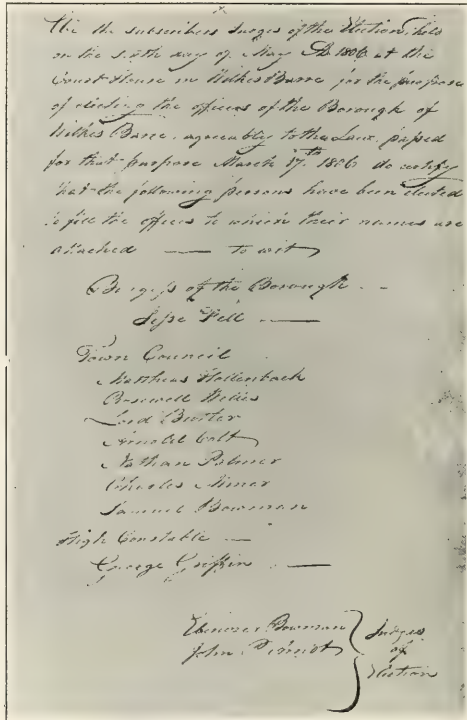 We the subscribers Judges of the Election, held
on the sixth day of May AD 1806 at the
Court House in Wilkes Barre for the purpose
of electing the officers of the Borough of
Wilkes Barre, agreeably to the Law, passed
for that purpose March 17th 1806 do certify
that the following persons have been elected
to fill the offices to which their names are
attached — to wit
Burgess of the Borough
Jesse Fell —
Town Council
Matthias Hollenback
Roswell Welles
Lord Butler
Arnold Colt
Nathan Palmer
Charles Miner
Samuel Bowman
High Constable —
George Griffin —
Ebenezer Bowman
John
Judges
of
Election